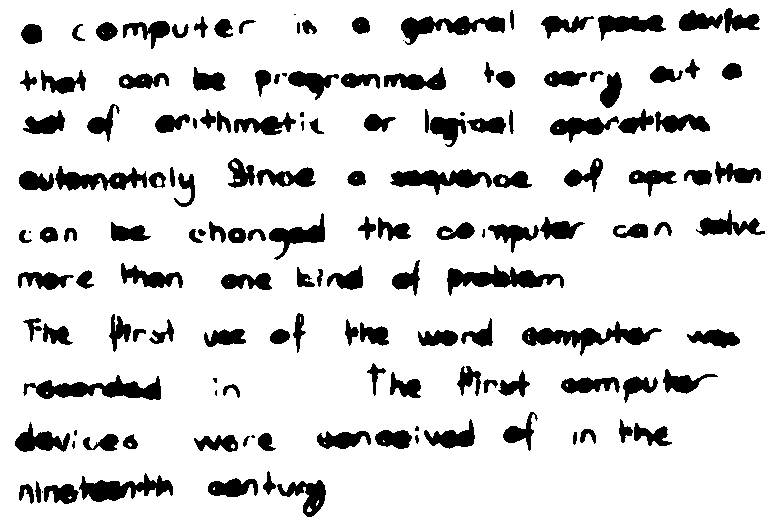 a computer is a general purpose device
that can be programmed to carry out a
set of arithmetic or logical operations
automaticly Since a sequence of operation
can be changed the computer can solve
more than one kind of problem
The first use of the word computer was
recorded in The first computer
devices were conceived of in the
nineteenth century